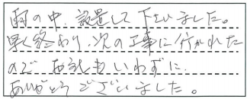 雨の中、設置して下さいました。
早く終わり、次の工事に行かれた
ので お礼もいわずに
ありがとうございました。